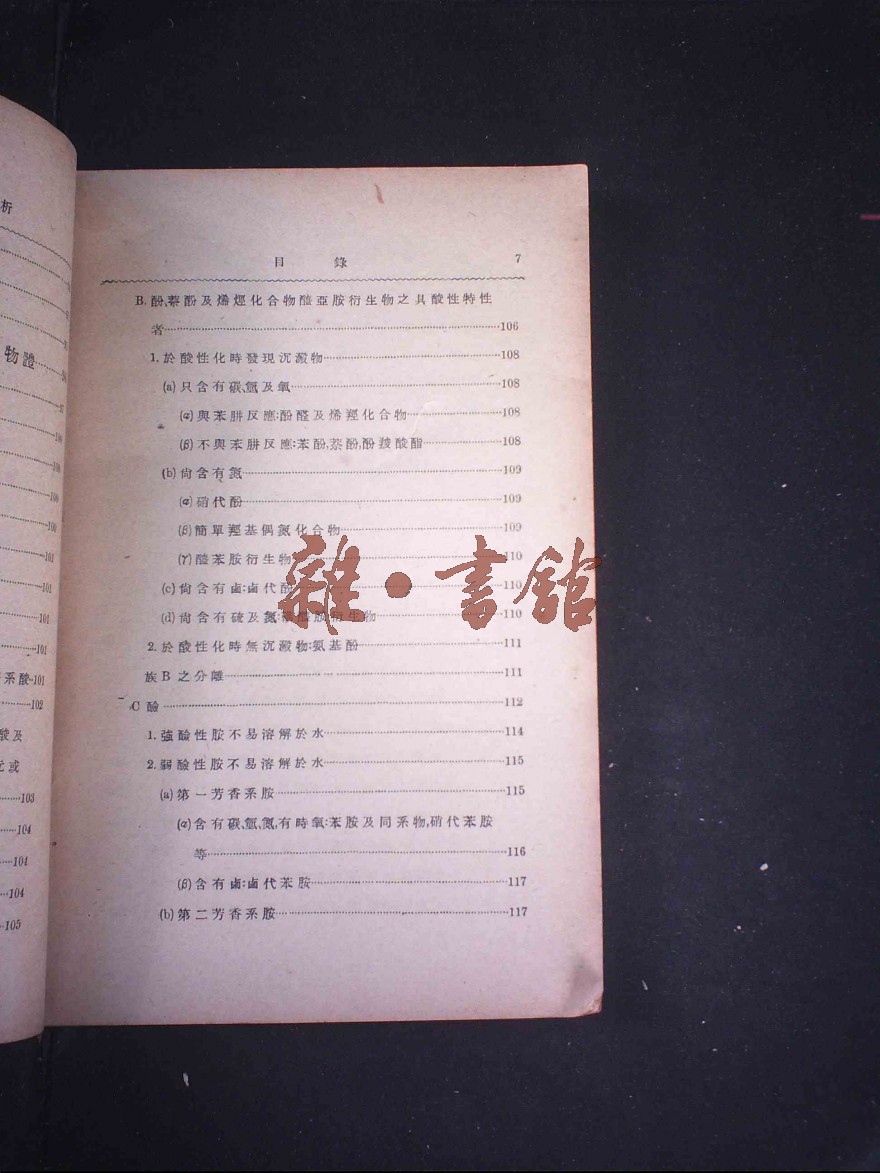 析
物證
101
101
101
101
系酸 101
102
酸及
元或
103
104
104
104
105
目 錄 7
B. 酚、萘酚及烯烴化合物醯亞胺衍生物之具酸性特性
者 106
1. 於酸性化時發現沉澱物 108
(a) 只含有碳、氫及氧 108
(α) 與苯肼反應:酚醛及烯羥化合物 108
(β) 不與苯肼反應:苯酚,萘酚,酚羧酸酯 108
(b) 尙含有氮 109
(α) 硝代酚 109
(β) 簡單羥基偶氮化合物 109
(γ) 醯苯胺衍生物 110
(c) 尙含有鹵:鹵代酚 110
(d) 尙含有硫及氮:磺醯胺衍生物 110
2. 於酸性化時無沉澱物:氨基酚 111
族 B 之分離 111
C 鹼 112
1. 強鹼性胺不易溶解於水 114
2. 弱鹼性胺不易溶解於水 115
(a) 第一芳香系胺 115
(α) 含有碳、氫、氮,有時氧:苯胺及同系物,硝代苯胺
等 116
(β) 含有鹵:鹵代苯胺 117
(b) 第二芳香系胺 117
雜·書館